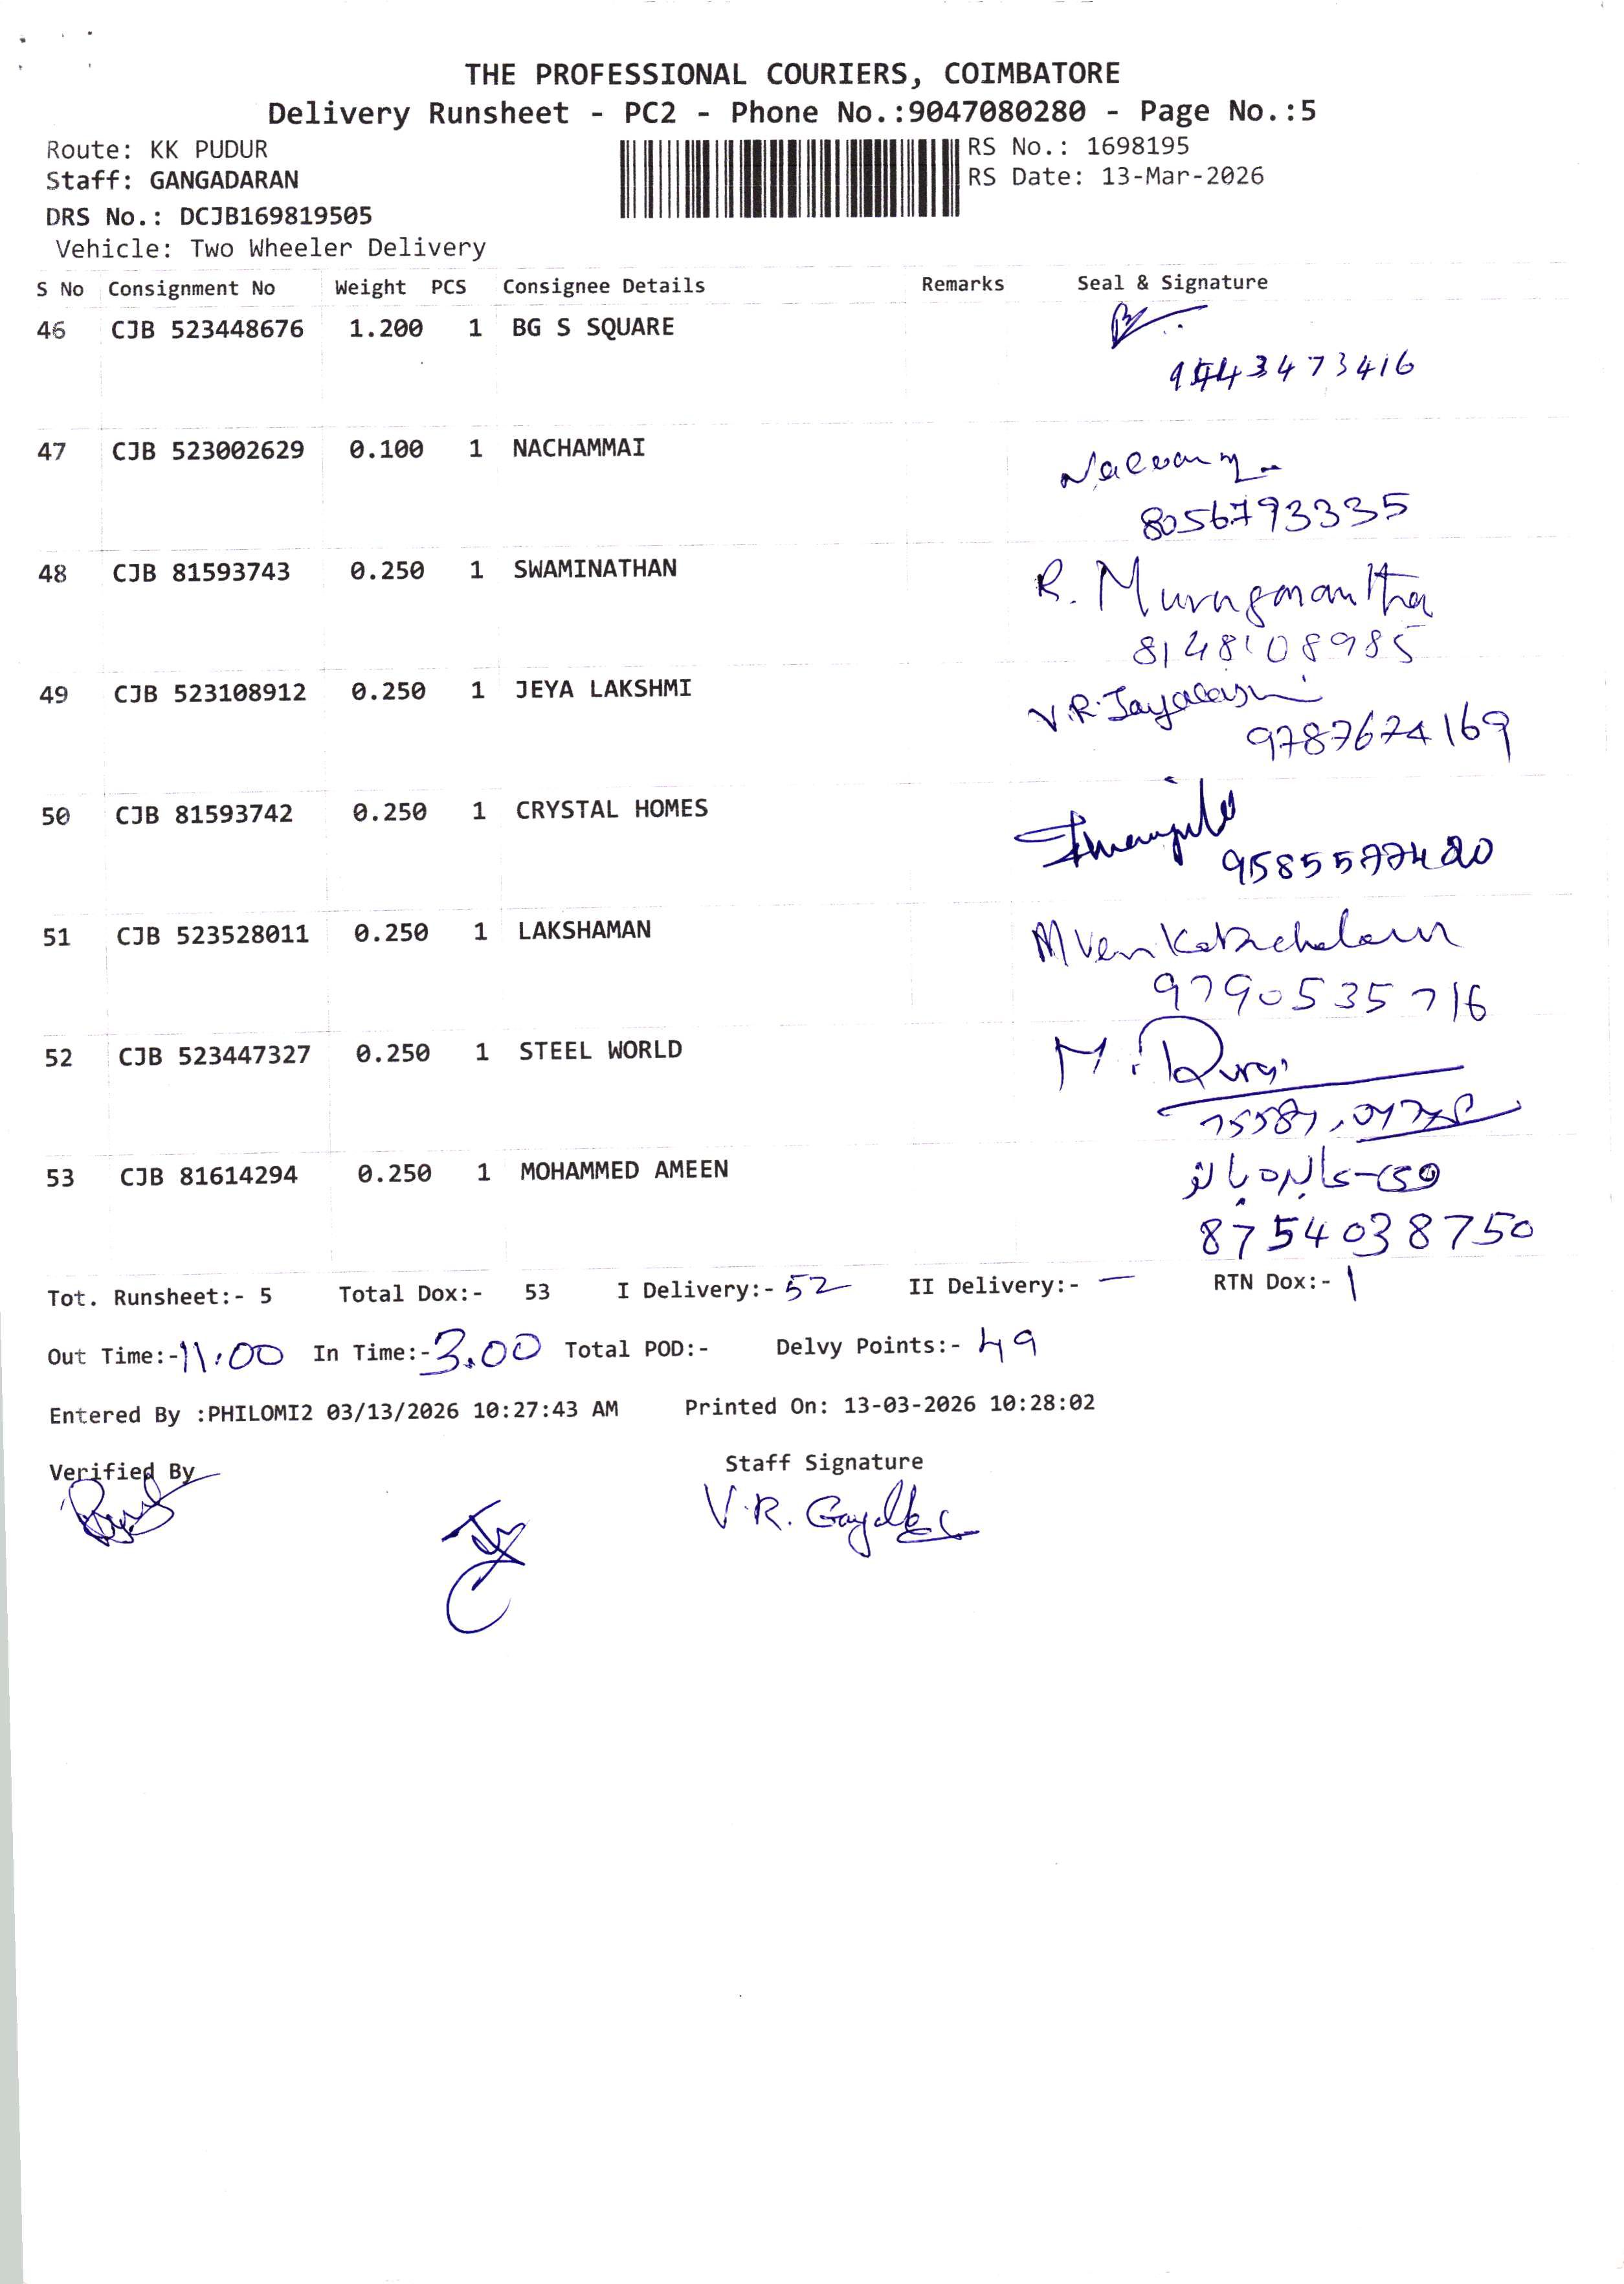 THE PROFESSIONAL COURIERS, COIMBATORE
Delivery Runsheet - PC2 - Phone No.:9047080280 - Page No.:5
Route: KK PUDUR
RS No.: 1698195
Staff: GANGADARAN
RS Date: 13-Mar-2026
DRS No.: DCJB169819505
Vehicle: Two Wheeler Delivery
S No Consignment No Weight PCS Consignee Details Remarks Seal & Signature
46 CJB 523448676 1.200 1 BG S SQUARE
9443473416
47 CJB 523002629 0.100 1 NACHAMMAI
8056793335
48 CJB 81593743 0.250 1 SWAMINATHAN R.
8148108985
49 CJB 523108912 0.250 1 JEYA LAKSHMI V.R.
9787674169
50 CJB 81593742 0.250 1 CRYSTAL HOMES
9585577420
51 CJB 523528011 0.250 1 LAKSHAMAN M Venkatachalam
9790535716
52 CJB 523447327 0.250 1 STEEL WORLD M. Durai
53 CJB 81614294 0.250 1 MOHAMMED AMEEN
8754038750
Tot. Runsheet:- 5 Total Dox:- 53 I Delivery:- 52 II Delivery:- — RTN Dox:- 1
Out Time:- 11.00 In Time:- 3.00 Total POD:- Delvy Points:- 49
Entered By :PHILOMI2 03/13/2026 10:27:43 AM Printed On: 13-03-2026 10:28:02
Verified By
Staff Signature
V.R.